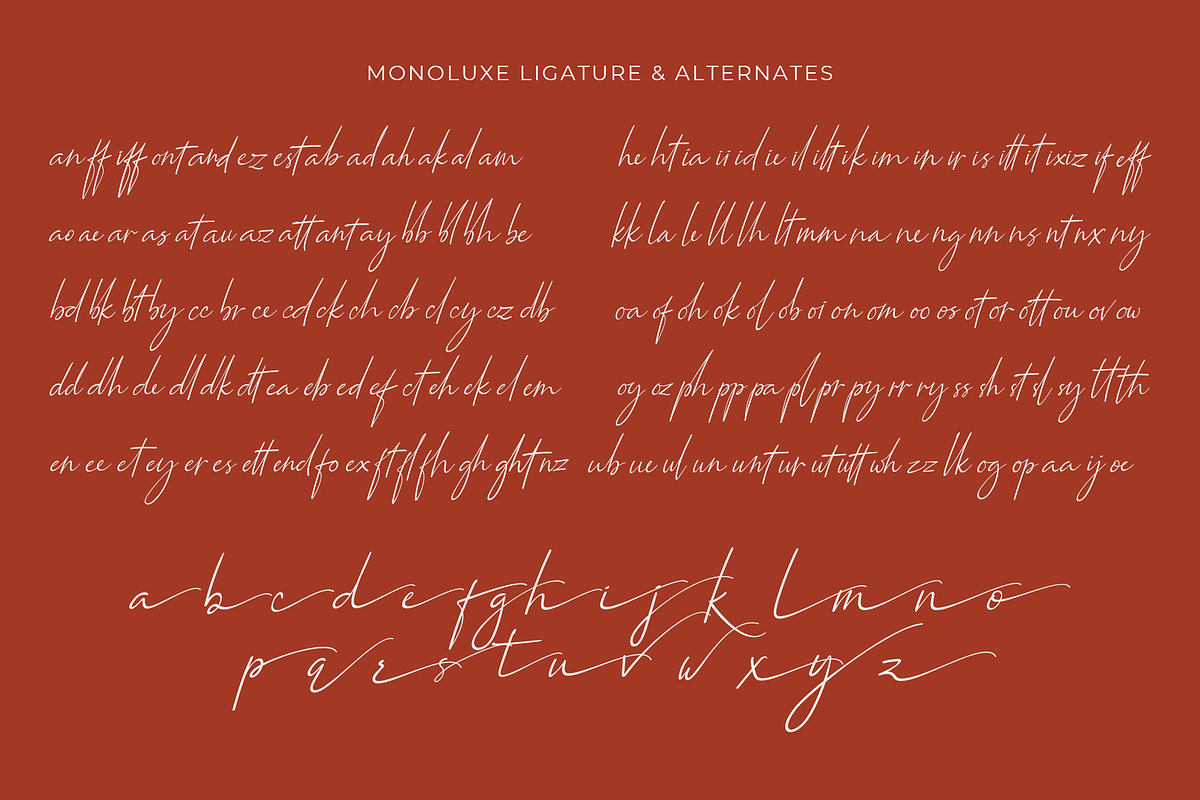 MONOLUXE LIGATURE & ALTERNATES
an ff iff ont and ez est ab ad ah ak al am
ao ae ar as at au az att ant ay bb bl bh be
bd bk bt by cc br ce cd ck ch cb cl cy cz db
dd dh de dl dk dt ea eb ed ef ct eh ek el em
en ee et ey er es ett end fo ex ft fl fh gh ght nz
he ht ia ii id ie il ilt ik im in ir is itt it ix iz if eff
kk la le ll lh lt mm na ne ng nn ns nt nx ny
oa of oh ok ol ob oi on om oo os ot or ott ou ov ow
oy oz ph pp pa pl pr py rr ry ss sh st sl sy tt th
ub ue ul un unt ur ut utt wh zz lk og op aa ij oe
a b c d e f g h i j k l m n o
p q r s t u v w x y z